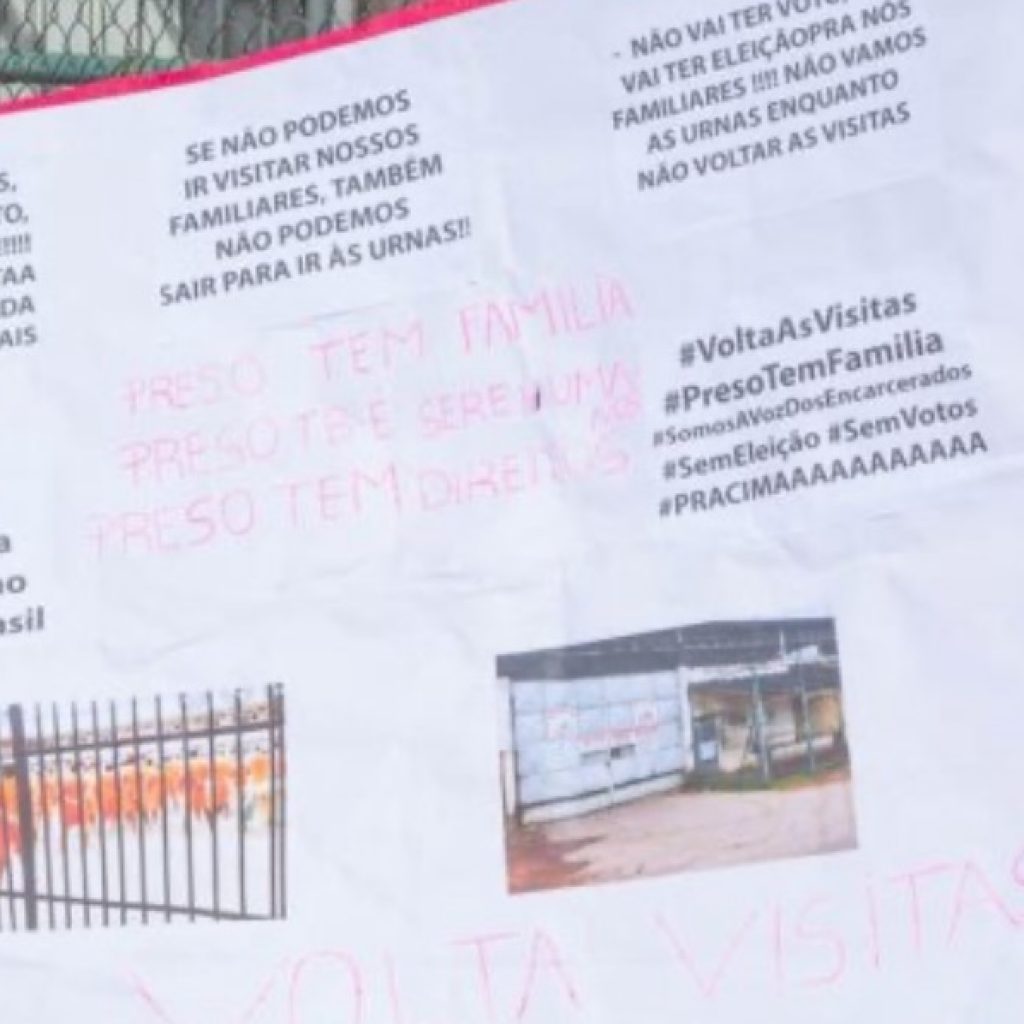 - NÃO VAI TER VOTO,
VAI TER ELEIÇÃOPRA NÓS
FAMILIARES !!!! NÃO VAMOS
AS URNAS ENQUANTO
NÃO VOLTAR AS VISITAS
SE NÃO PODEMOS
IR VISITAR NOSSOS
FAMILIARES, TAMBÉM
NÃO PODEMOS
SAIR PARA IR ÀS URNAS!!
S,
TO,
!!!!!
TAA
DA
AIS
PRESO TEM FAMILIA
PRESO TB É SERE HUMA
NOS
PRESO TEM DIREITOS
#VoltaAsVisitas
#PresoTemFamilia
#SomosAVozDosEncarcerados
#SemEleição #SemVotos
#PRACIMAAAAAAAAAAA
a
no
asil
VOLTA VISITAS